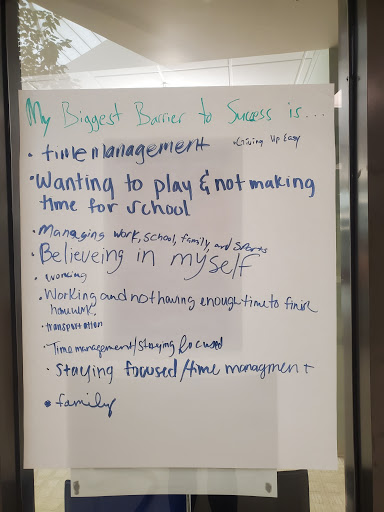 My Biggest Barrier to Success is...
• Giving Up Easy
• time management
• Wanting to play & not making
time for school
• Managing work, school, family, and sports
• Believeing in myself
• working
• Working and not having enough time to finish
homework.
• transportation
• Time management/staying focused
• Staying focused/time managment
• family